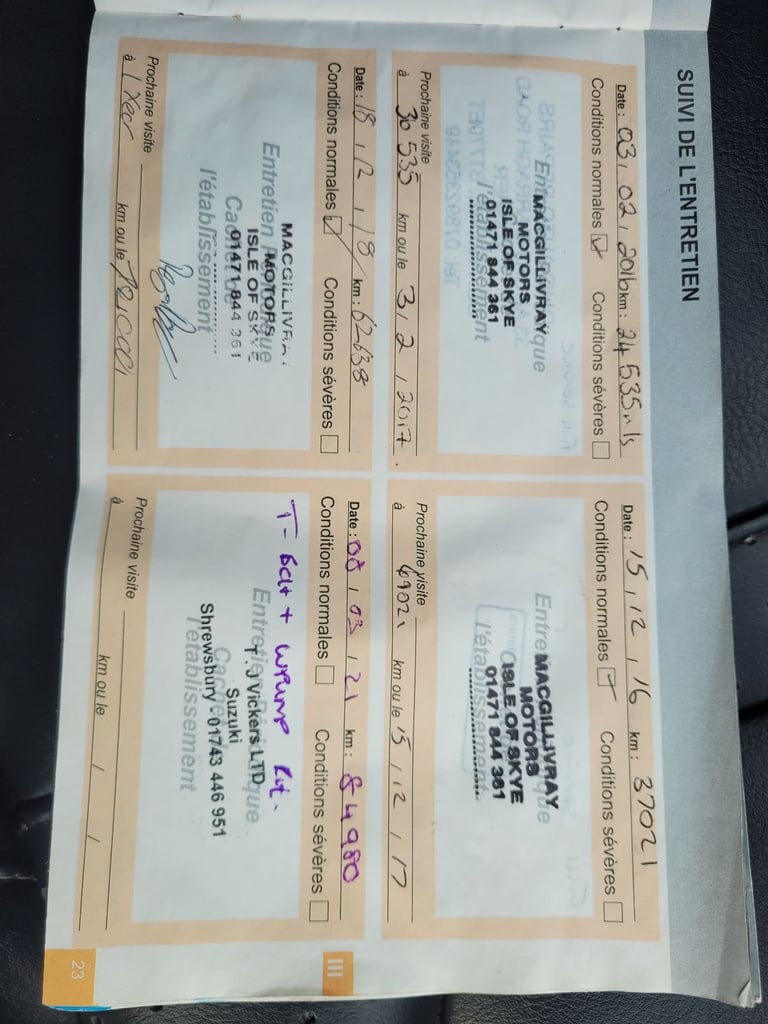 SUIVI DE L'ENTRETIEN
Date : 03 , 02 , 2016 km : 24 535 mls
Conditions normales ☑ Conditions sévères ☐
MACGILLIVRAY
MOTORS
ISLE OF SKYE
01471 844 361
l'établissement
Prochaine visite
à 30 535 km ou le 3 , 2 , 2017 .
Date : 15 , 12 , 16 km : 37021
Conditions normales ☑ Conditions sévères ☐
MACGILLIVRAY
MOTORS
ISLE OF SKYE
01471 844 361
l'établissement
Prochaine visite
à km ou le 15 , 12 , 17
Date : 18 , 12 , 18 km : 62638
Conditions normales ☑ Conditions sévères ☐
Entretien Périodique
Cachet de
l'établissement
MACGILLIVRAY
MOTORS
ISLE OF SKYE
01471 844 361
Prochaine visite
à 1 Year km ou le
Date : 08 , 03 , 21 km : 84980
Conditions normales ☐ Conditions sévères ☐
T-Belt + W/Pump Kit.
Entretien Périodique
Cachet de
l'établissement
T. J Vickers LTD
Suzuki
Shrewsbury - 01743 446 951
Prochaine visite
à km ou le / /
III
23